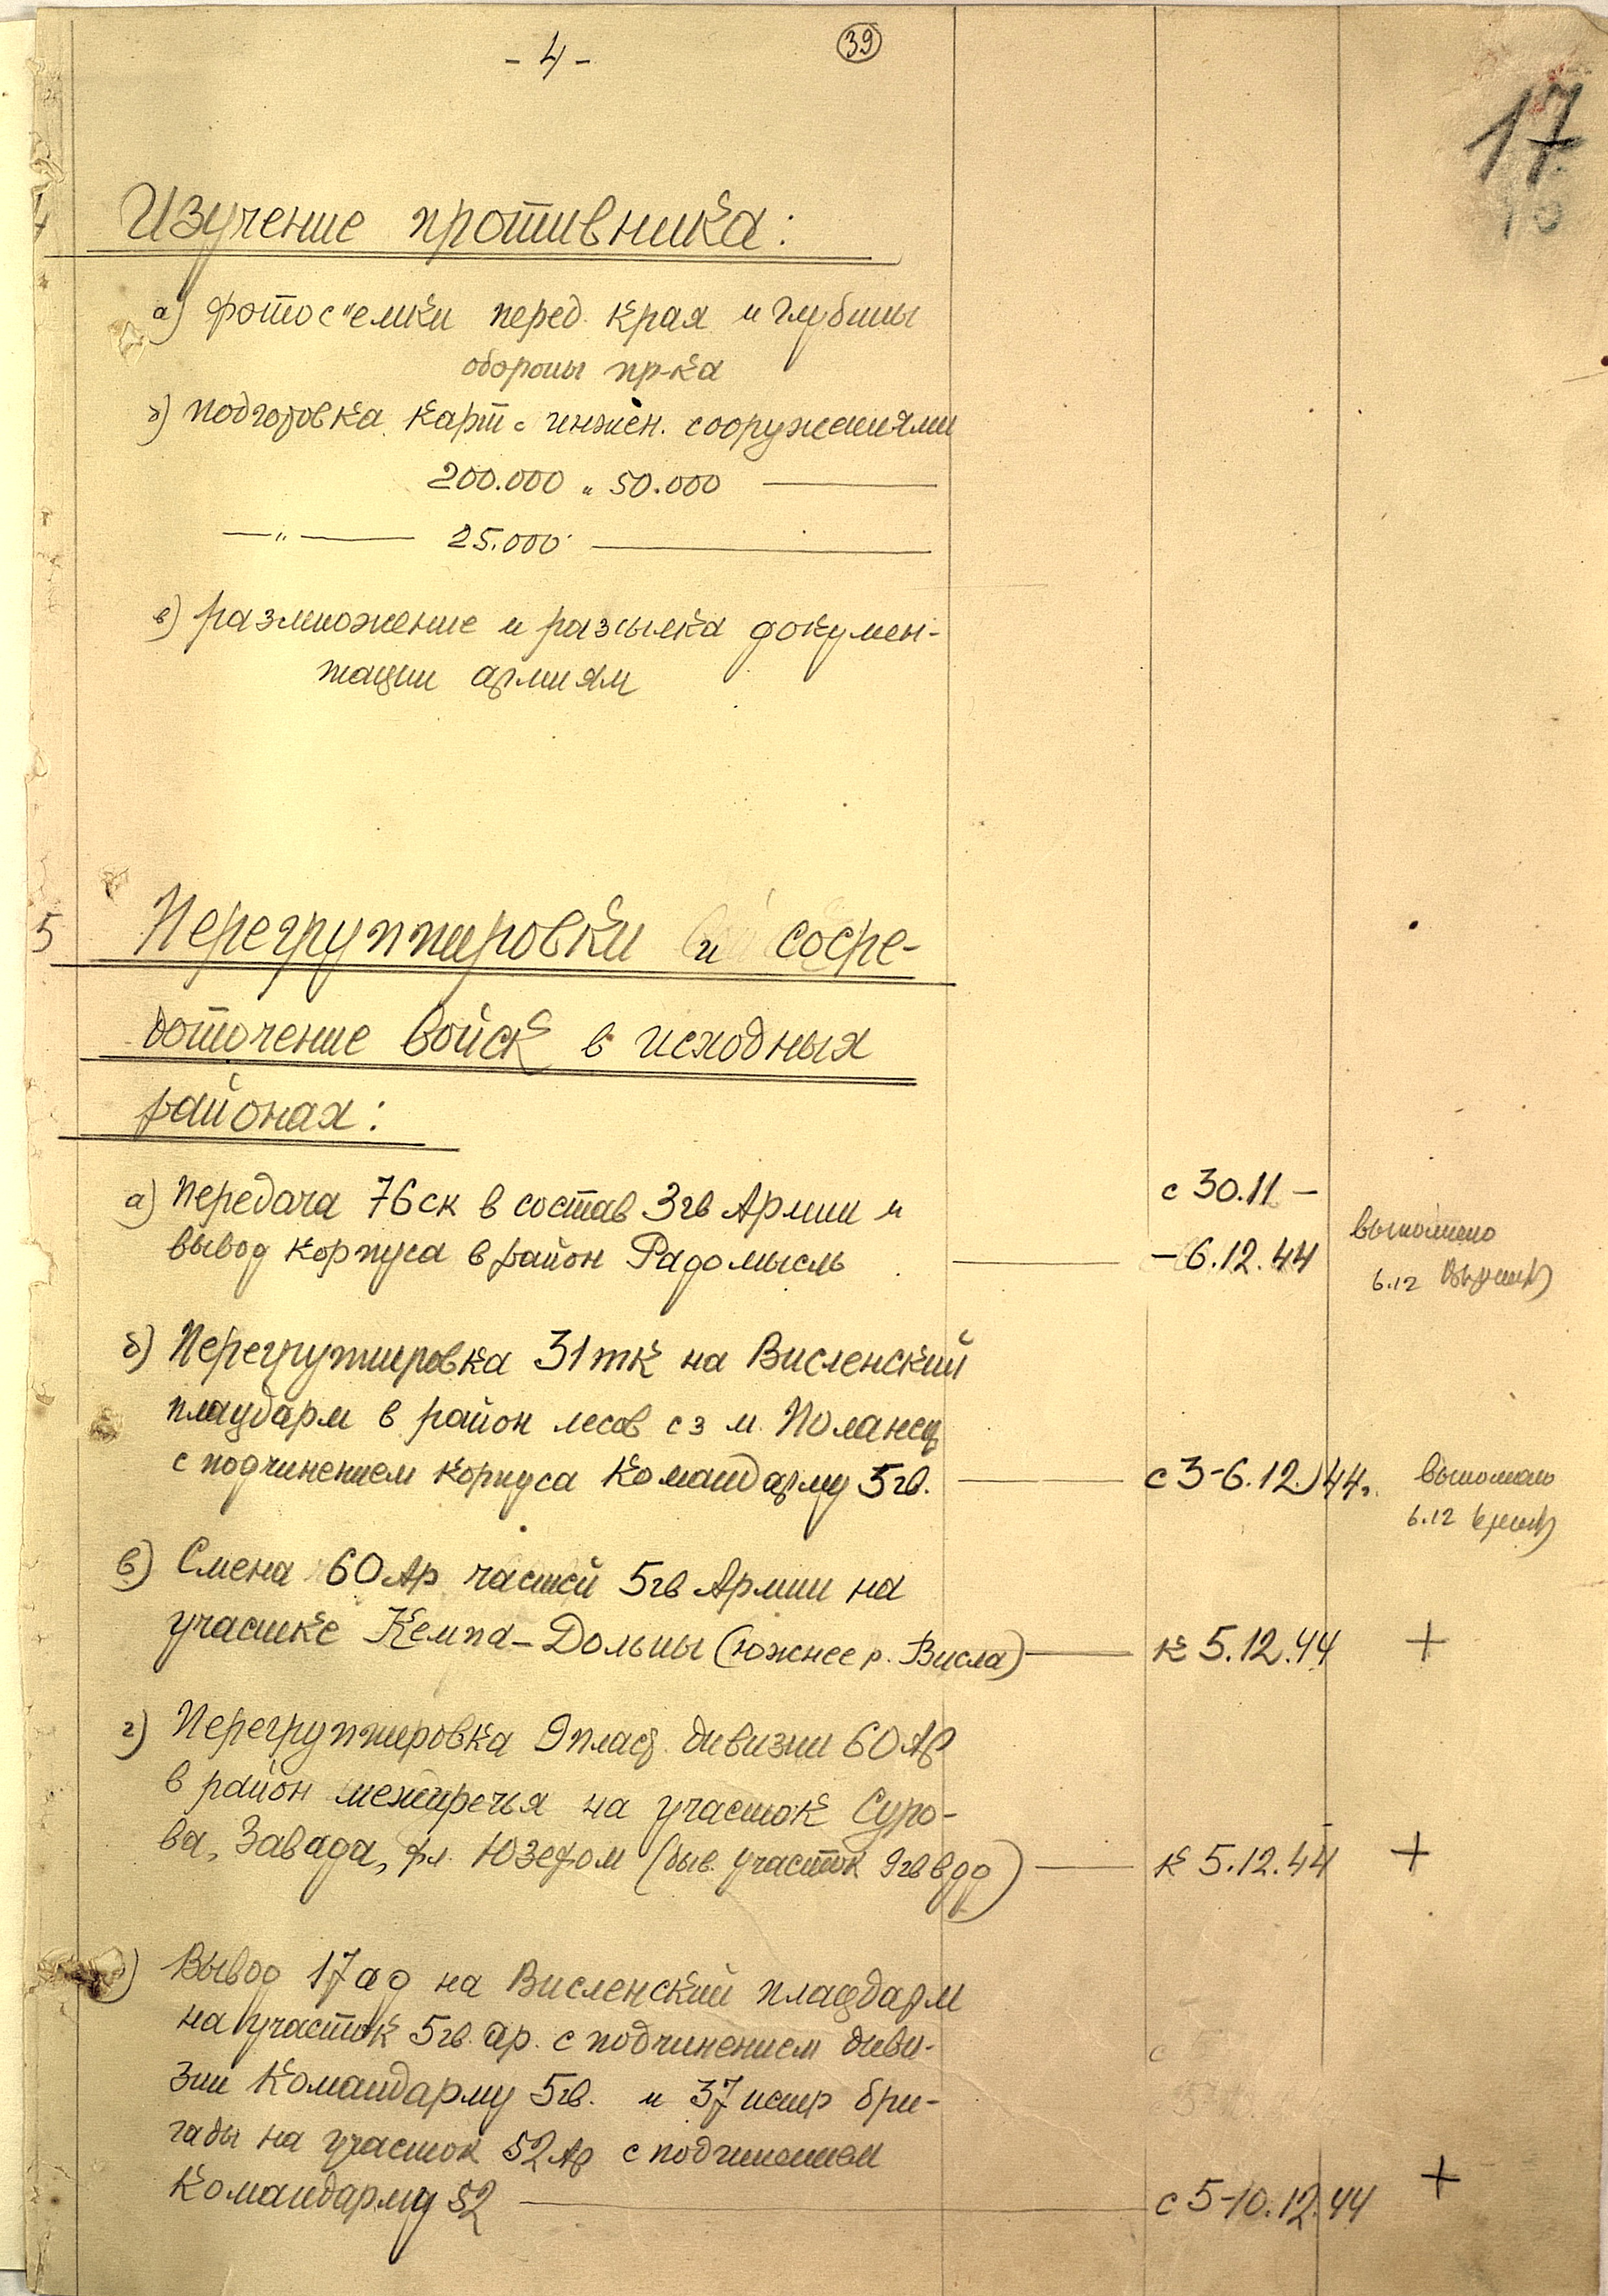 - 4 -
39
17
4
Изучение противника:
а) фотос"емки перед. края и глубины
обороны пр-ка
б) подготовка карт с инжен. сооружениями
200.000 и 50.000 —
—"— 25.000 —
в) размножение и разсылка докумен-
тации армиям
5
Перегруппировки и сосре-
доточение войск в исходных
районах:
а) Передача 76 ск в состав 3 гв Армии и
вывод корпуса в район Радомысль —
с 30.11 —
— 6.12.44
выполнено
6.12
б) Перегруппировка 31 тк на Висленский
плацдарм в район лесов с з м. Поланец
с подчинением корпуса Командарму 5 гв. —
с 3-6.12.44г.
выполнено
6.12
в) Смена 60 Ар частей 5 гв Армии на
участке Кемпа-Дольны (южнее р. Висла) —
к 5.12.44
+
г) Перегруппировка 9 пласт. дивизии 60 Ар
в район межуречья на участок Суро-
ва, Завада, фл. Юзефом (быв. участок 9 гв вдд) —
к 5.12.44
+
) Вывод 17 ад на Висленский плацдарм
на участок 5 гв. ар. с подчинением диви-
зии Командарму 5 гв. и 37 иптр бри-
гады на участок 52 Ар с подчинением
Командарму 52 —
с 5-10.12.44
+